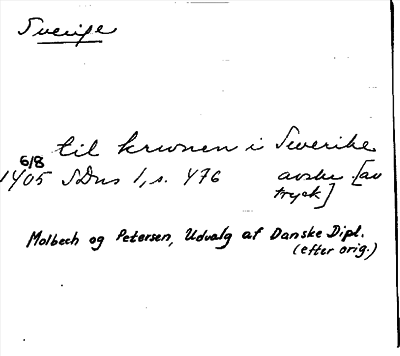 Sverige
til kronen i Swerike
6/8
1405 SDns 1, s. 476 avskr. [av
tryck]
Molbech og Petersen, Udvalg af Danske Dipl.
(efter orig.)